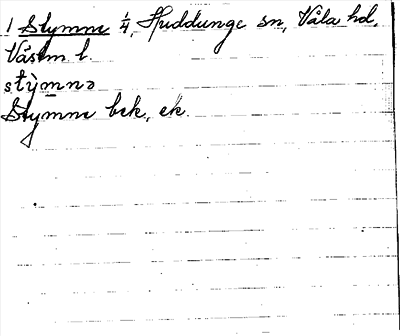 1 Stymne ¼, Huddunge sn, Våla hd,
Västm l.
stỳmnə
Stymne bek, ek.